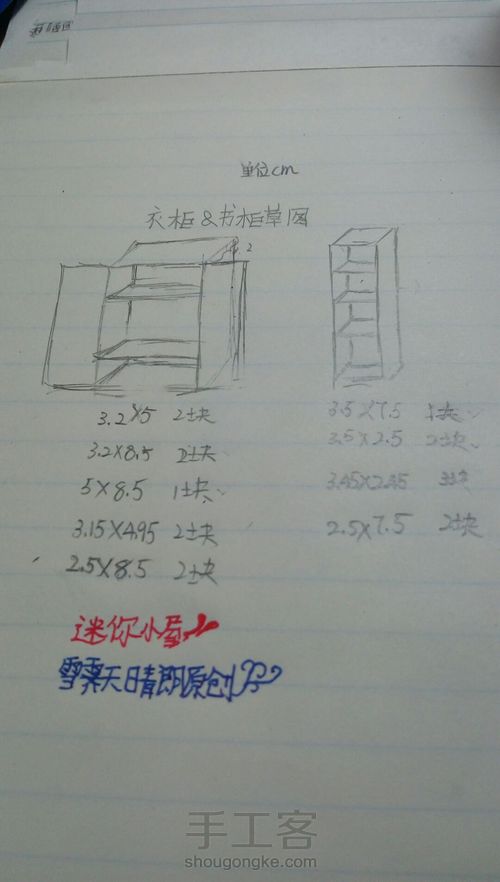 单位cm
衣柜&书柜草图
2
3.2×5 2块
3.2×8.5 2块
5×8.5 1块
3.15×4.95 2块
2.5×8.5 2块
3.5×7.5 1块
3.5×2.5 2块
3.45×2.45 3块
2.5×7.5 2块
迷你小屋
雪霁天晴朗原创
手工客
shougongke.com